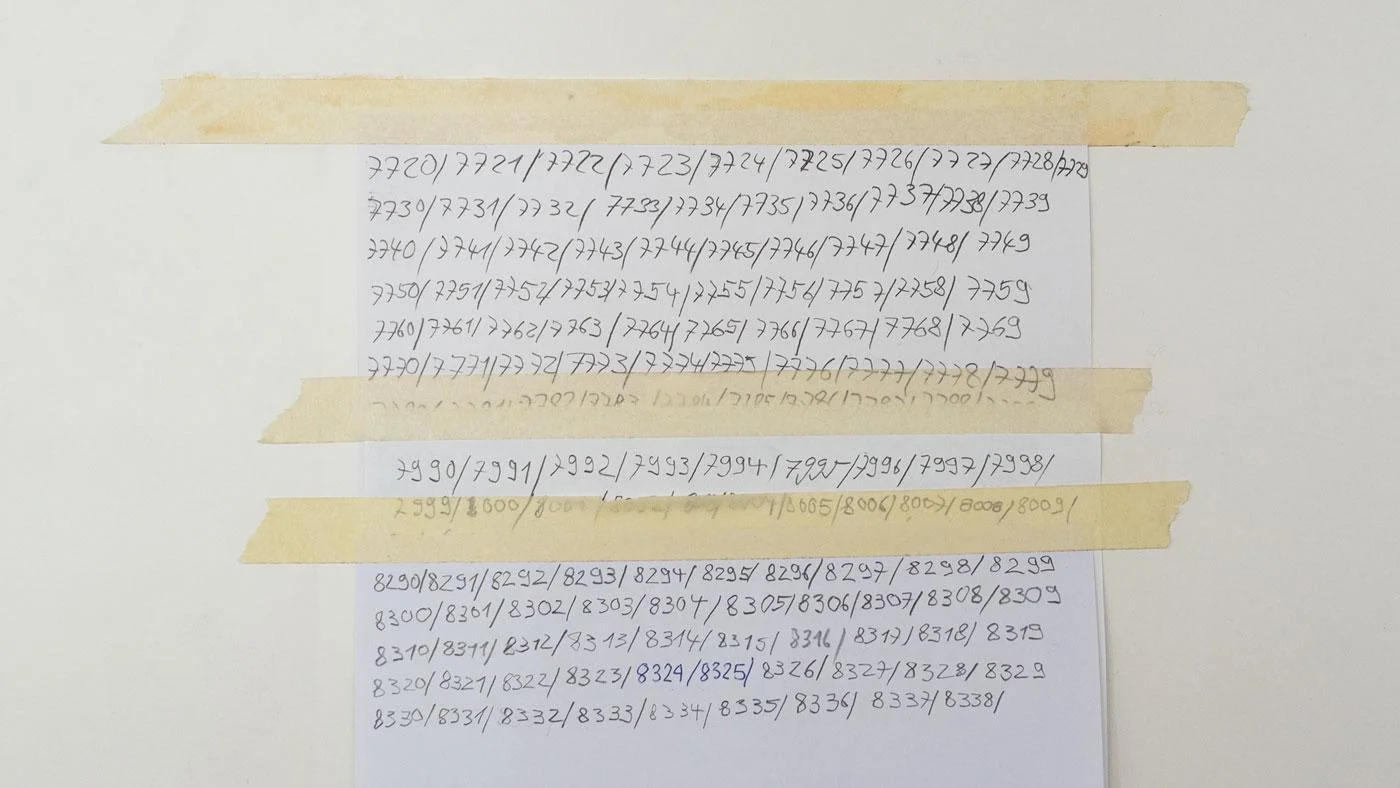 7720/7721/7722/7723/7724/7725/7726/7727/7728/7729
7730/7731/7732/ 7733/7734/7735/7736/7737/7738/7739
7740/7741/7742/7743/7744/7745/7746/7747/7748/ 7749
7750/7751/7752/7753/7754/7755/7756/7757/7758/ 7759
7760/7761/7762/7763/7764/7765/7766/7767/7768/7769
7770/7771/7772/7773/7774/7775/7776/7777/7778/7779
7990/7991/7992/7993/7994/7995/7996/7997/7998/
7999/8000/ 8005/8006/8007/8008/8009/
8290/8291/8292/8293/8294/8295/8296/8297/8298/8299
8300/8301/8302/8303/8304/8305/8306/8307/8308/8309
8310/8311/8312/8313/8314/8315/8316/8317/8318/8319
8320/8321/8322/8323/8324/8325/8326/8327/8328/8329
8330/8331/8332/8333/8334/8335/8336/8337/8338/